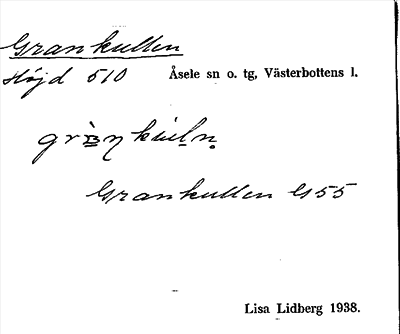 Grankullen
Höjd 510
Åsele sn o. tg, Västerbottens l.
Grankullen G55
Lisa Lidberg 1938.